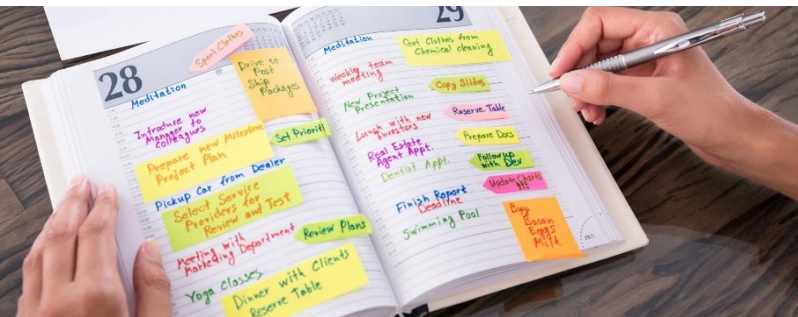 28
Sport Clothes
Meditation
Drive to
Post
Ship
Packages
Introduce new
Manager to
Colleagues
Set Priority
Prepare new Milestone
Project Plan
Pickup Car from Dealer
Select Service
Providers for
Review and Test
Meeting with
Marketing Department
Review Plans
Yoga Classes
Dinner with Clients
Reserve Table
29
Meditation
Get Clothes from
Chemical cleaning
Weekly team
meeting
Copy Slides
New Project
Presentation
Reserve Table
Lunch with new
Investors
Prepare Docs
Real Estate
Agent Appt.
Followup
with Dev
Dentist Appt.
Update Charts
Finish Report
Deadline
Swimming Pool
Buy
Bacon
Eggs
Milk